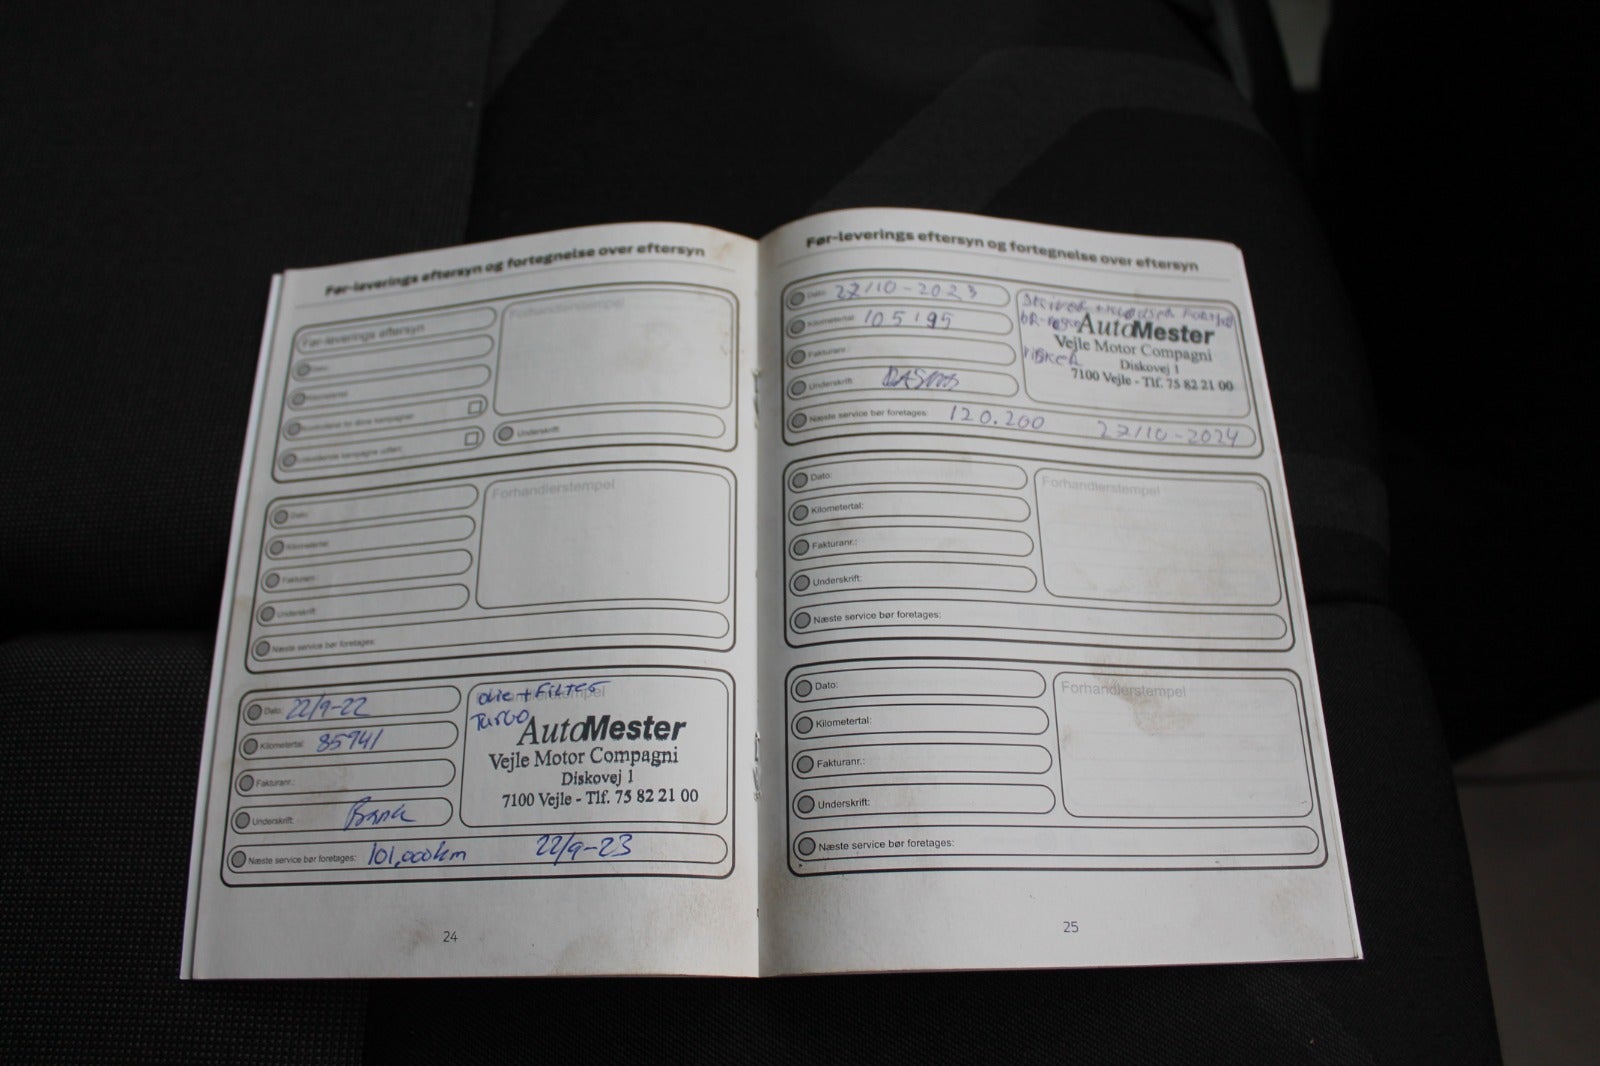 Før-leverings eftersyn og fortegnelse over eftersyn
Før-leverings eftersyn
Forhandlerstempel
Dato:
Kilometertal:
Underskrift:
Dato:
Kilometertal:
Fakturanr.:
Underskrift:
Næste service bør foretages:
Forhandlerstempel
Dato: 22/9-22
Kilometertal: 85941
Fakturanr.:
Underskrift:
Næste service bør foretages: 101,000km 22/9-23
Forhandlerstempel
olie + Filter
Turbo
AutoMester
Vejle Motor Compagni
Diskovej 1
7100 Vejle - Tlf. 75 82 21 00
24
Før-leverings eftersyn og fortegnelse over eftersyn
Dato: 27/10-2023
Kilometertal: 105195
Fakturanr.:
Underskrift:
Næste service bør foretages: 120.200 27/10-2024
AutoMester
Vejle Motor Compagni
Diskovej 1
7100 Vejle - Tlf. 75 82 21 00
Dato:
Kilometertal:
Fakturanr.:
Underskrift:
Næste service bør foretages:
Forhandlerstempel
Dato:
Kilometertal:
Fakturanr.:
Underskrift:
Næste service bør foretages:
Forhandlerstempel
25